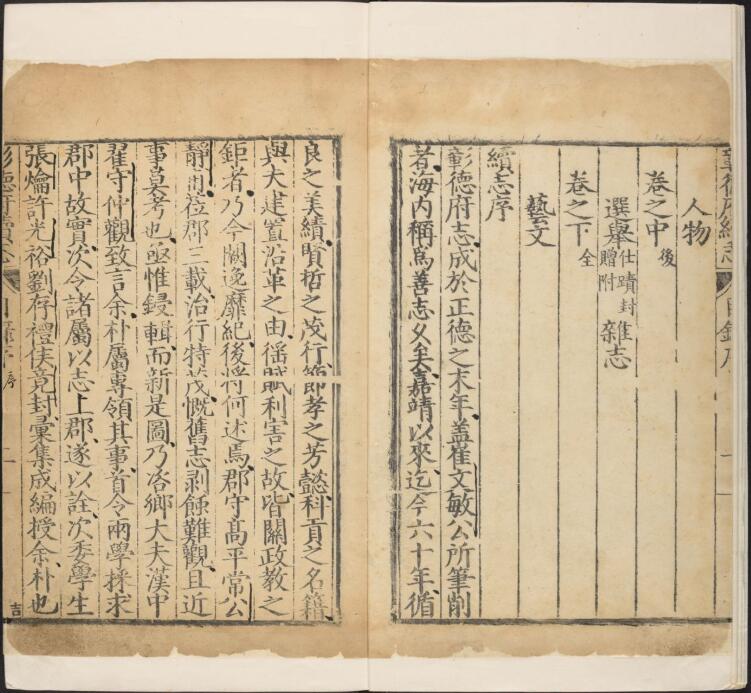 人物
卷之中 後
選舉 仕蹟封贈附 雜志
卷之下 全
藝文
續志序
彰德府志成於正德之末年蓋崔文敏公所筆削
者海内稱爲善志久矣嘉靖以來迄今六十年循
良之美績賢哲之茂行節孝之芳懿科貢之名籍
與夫建置沿革之由徭賦利害之故皆關政教之
鉅者乃今闕逸靡紀後將何述焉郡守高平常公
靜菴蒞郡三載治行特茂慨舊志剥蝕難觀且近
事莫考也亟惟鋟輯而新是圖乃咨鄉大夫漢中
翟守仲觀致言余朴屬專領其事首令兩學採求
郡中故實次令諸屬以志上郡遂以詮次委學生
張爚許光裕劉存禮侯竟封彙集成編授余朴也
彰德府續志
目錄序
二
吉